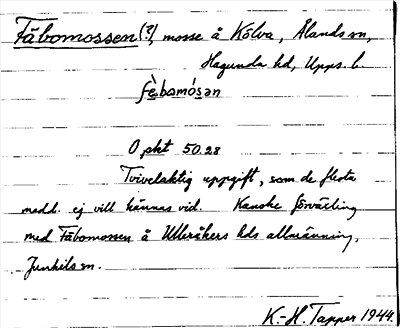 Fäbomossen (?), mosse å Kölva, Ålands sn,
Hagunda hd, Upps. l.
fè̱bomó̱sən
O pkt 50.28
Tvivelaktig uppgift, som de flesta
medd. ej vill kännas vid. Kanske förväxling
med Fäbomossen å Ulleråkers hds allmänning,
Jumkils sn.
K.-H. Tapper 1944.